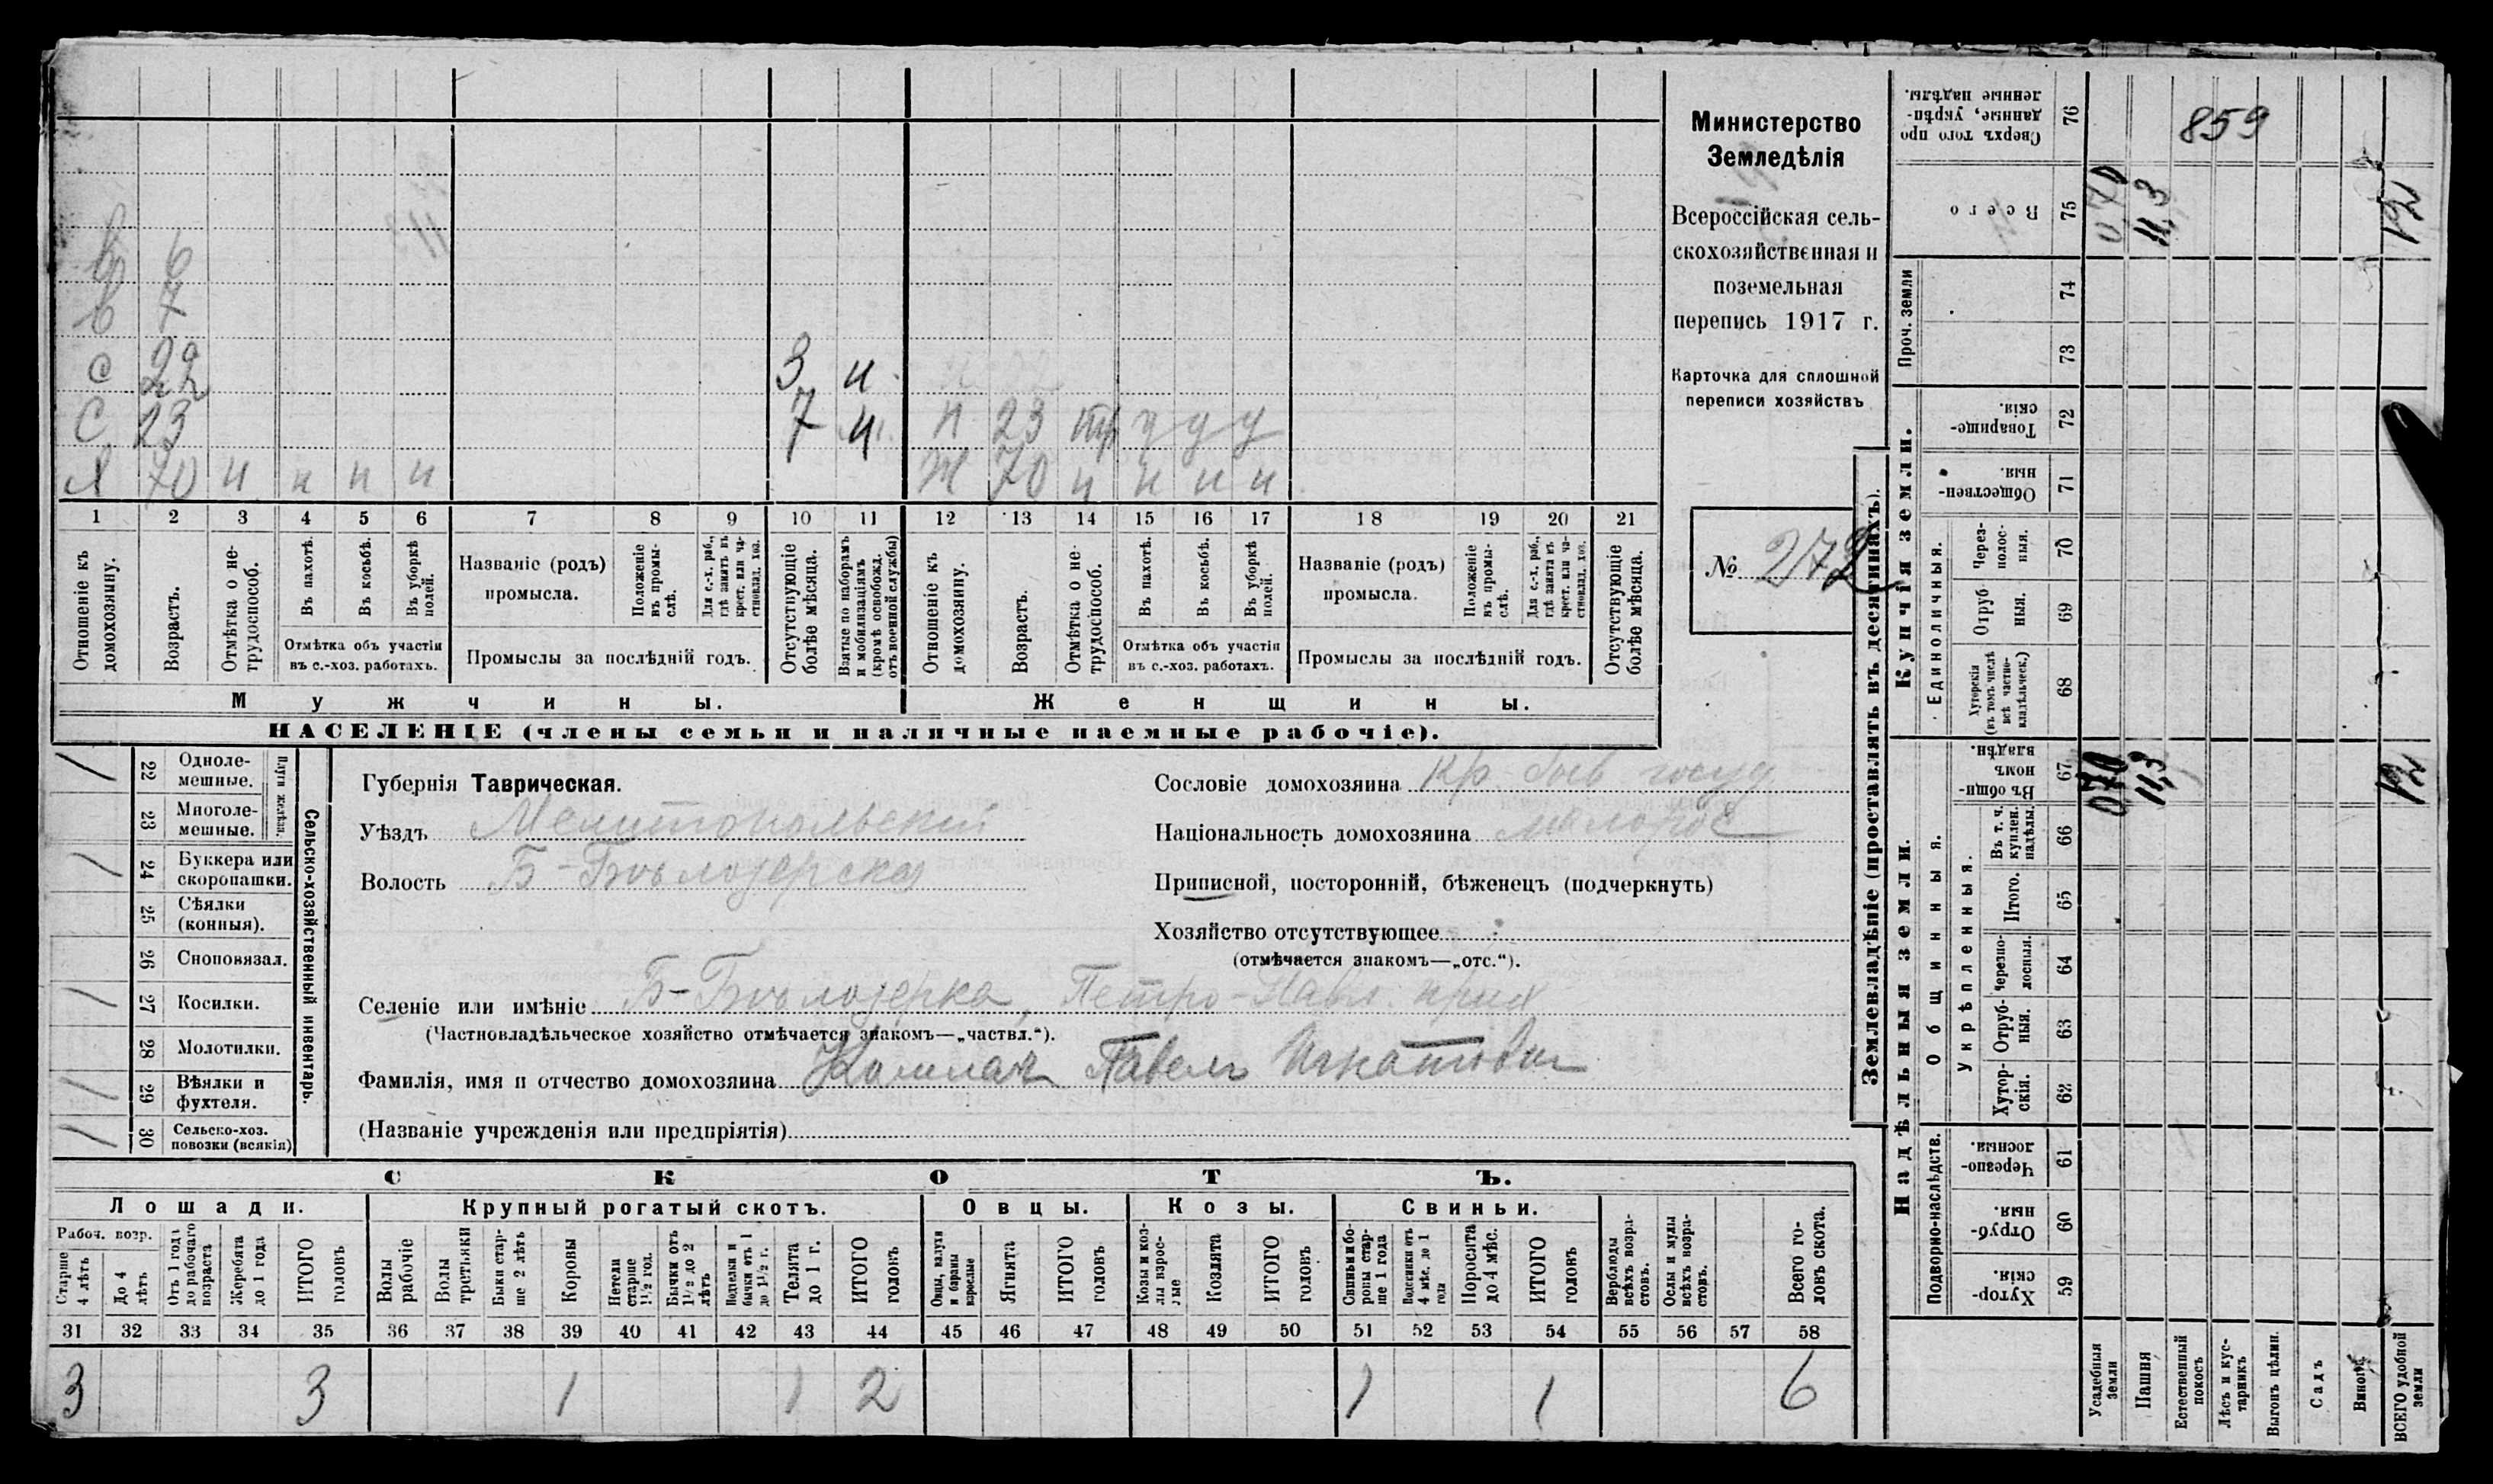 Министерство
Земледѣлія
Всероссійская сель-
скохозяйственная и
поземельная
перепись 1917 г.
Карточка для сплошной
переписи хозяйствъ
№ 272
в 6
в 7
с 22 3 и
С 23 7 и п 23 у у у
Я 70 н н н н Ж 70 н н н н
1 2 3 4 5 6 7 8 9 10 11 12 13 14 15 16 17 18 19 20 21
Отношеніе къ домохозяину.
Возрастъ.
Отмѣтка о не-трудоспособ.
Въ пахотѣ.
Въ косьбѣ.
Въ уборкѣ полей.
Отмѣтка объ участіи
въ с.-хоз. работахъ.
Названіе (родъ)
промысла.
Положеніе въ промы-слѣ.
Для с.-х. раб., гдѣ занятъ въ крест. или ча-стновлад. хоз.
Промыслы за послѣдній годъ.
Отсутствующіе болѣе мѣсяца.
Взятые по наборамъ и мобилизаціямъ (кромѣ освобожд. отъ военной службы)
Отношеніе къ домохозяину.
Возрастъ.
Отмѣтка о не-трудоспособ.
Въ пахотѣ.
Въ косьбѣ.
Въ уборкѣ полей.
Отмѣтка объ участіи
въ с.-хоз. работахъ.
Названіе (родъ)
промысла.
Положеніе въ промы-слѣ.
Для с.-х. раб., гдѣ занята въ крест. или ча-стновлад. хоз.
Промыслы за послѣдній годъ.
Отсутствующіе болѣе мѣсяца.
Мужчины. Женщины.
НАСЕЛЕНІЕ (члены семьи и наличные наемные рабочіе).
Сельско-хозяйственный инвентарь.
Плуги желѣзн.
1 22 Однолемешные.
23 Многолемешные.
1 24 Буккера или скоропашки.
25 Сѣялки (конныя).
26 Сноповязал.
1 27 Косилки.
28 Молотилки.
1 29 Вѣялки и фухтеля.
1 30 Сельско-хоз. повозки (всякія)
Губернія Таврическая.
Уѣздъ Мелитопольскій
Волость Б-Бѣлозерска
Сословіе домохозяина Кр. быв госуд
Національность домохозяина малорос
Приписной, посторонній, бѣженецъ (подчеркнуть)
Хозяйство отсутствующее
(отмѣчается знакомъ—„отс.“).
Селеніе или имѣніе Б-Бѣлозерка, Петро-Павл. прих
(Частновладѣльческое хозяйство отмѣчается знакомъ—„частвл.“).
Фамилія, имя и отчество домохозяина Павелъ Игнатович
(Названіе учрежденія или предпріятія)
СКОТЪ.
Лошади. Крупный рогатый скотъ. Овцы. Козы. Свиньи.
Рабоч. возр.
Старше 4 лѣтъ
До 4 лѣтъ
Отъ 1 годъ до рабочаго возраста
Жеребята до 1 года
ИТОГО головъ
Волы рабочіе
Волы третьяки
Быки стар-ше 2 лѣтъ
Коровы
Нетели старше 1½ год.
Бычки отъ 1½ до 2 лѣтъ
Подтелки и бычки отъ 1 до 1½ г.
Телята до 1 г.
ИТОГО головъ
Овцы, валухи и бараны взрослые
Ягнята
ИТОГО головъ
Козы и коз-лы взрос-лые
Козлята
ИТОГО головъ
Свиньи и бо-ровы стар-ше 1 года
Подсвинки отъ 4 мѣс. до 1 года
Поросята до 4 мѣс.
ИТОГО головъ
Верблюды всѣхъ возра-стовъ.
Ослы и мулы всѣхъ возра-стовъ.
Всего го-ловъ скота.
31 32 33 34 35 36 37 38 39 40 41 42 43 44 45 46 47 48 49 50 51 52 53 54 55 56 57 58
3 3 1 1 2 1 1 6
Землевладѣніе (проставлять въ десятинахъ).
Надѣльныя земли.
Подворно-наслѣдств.
Хутор-скія. 59
Отруб-ныя. 60
Черезпо-лосныя. 61
Общинныя.
Укрѣпленныя.
Хутор-скія. 62
Отруб-ныя. 63
Черезпо-лосныя. 64
Итого. 65
Въ т. ч. куплен. надѣлы. 66
Въ общин-номъ владѣн. 67 0,70 11,3 12
Купчія земли.
Единоличныя.
Хуторскія (въ томъ числѣ всѣ частно-владѣльческ.) 68
Отруб-ныя. 69
Через-полос-ныя. 70
Обществен-ныя. 71
Товарище-скія. 72
Проч. земли
73
74
Всего 75 0,70 11,3 12
Сверхъ того про-данные, укрѣп-ленные надѣлы. 76
859
Усадебныя земли
Пашня
Естественный покосъ
Лѣсъ и кус-тарникъ
Выгонъ цѣлин.
Садъ
Виногр.
ВСЕГО удобной земли